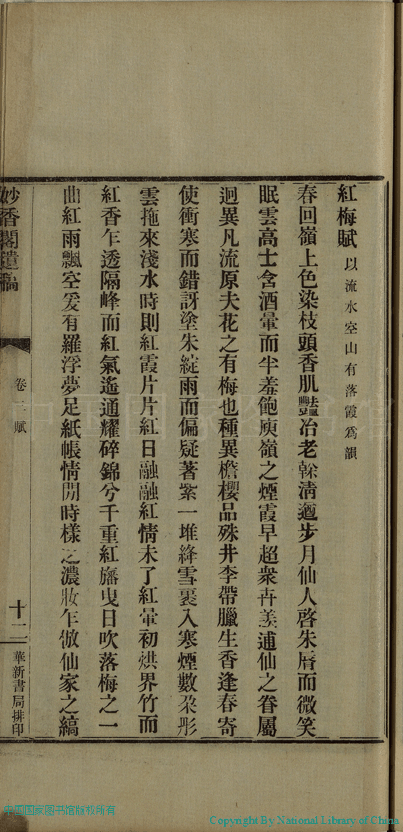 紅梅賦 以流水空山有落霞為韻
春回嶺上色染枝頭香肌豔冶老榦清遒步月仙人啓朱脣而微笑
眠雲高士含酒暈而半羞飽庾嶺之煙霞早超衆卉羨逋仙之眷屬
迥異凡流原夫花之有梅也種異檐櫻品殊井李帶臘生香逢春寄
使衝寒而錯訝塗朱綻雨而偏疑著紫一堆絳雪裹入寒煙數朶彤
雲拖來淺水時則紅霞片片紅日融融紅情未了紅暈初烘界竹而
紅香乍透隔峰而紅氣遙通耀碎錦兮千重紅旛曳日吹落梅之一
曲紅雨飄空爰有羅浮夢足紙帳情閒時樣之濃妝乍倣仙家之縞
妙香閣遺稿
卷一 賦
十二
華新書局排印
中国国家图书馆版权所有
Copyright By National Library of China